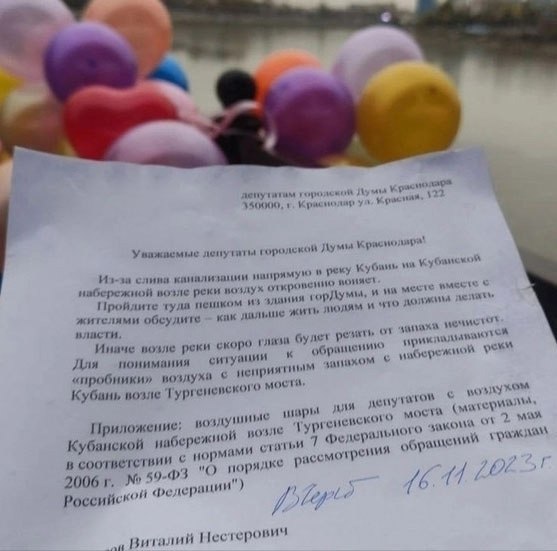 депутатам городской Думы Краснодара
350000, г. Краснодар ул. Красная, 122
Уважаемые депутаты городской Думы Краснодара!
Из-за слива канализации напрямую в реку Кубань на Кубанской
набережной возле реки воздух откровенно воняет.
Пройдите туда пешком из здания горДумы, и на месте вместе с
жителями обсудите – как дальше жить людям и что должны делать
власти.
Иначе возле реки скоро глаза будет резать от запаха нечистот.
Для понимания ситуации к обращению прикладываются
«пробники» воздуха с неприятным запахом с набережной реки
Кубань возле Тургеневского моста.
Приложение: воздушные шары для депутатов с воздухом
Кубанской набережной возле Тургеневского моста (материалы,
в соответствии с нормами статьи 7 Федерального закона от 2 мая
2006 г. № 59-ФЗ "О порядке рассмотрения обращений граждан
Российской Федерации")
16.11.2023г
Виталий Нестерович